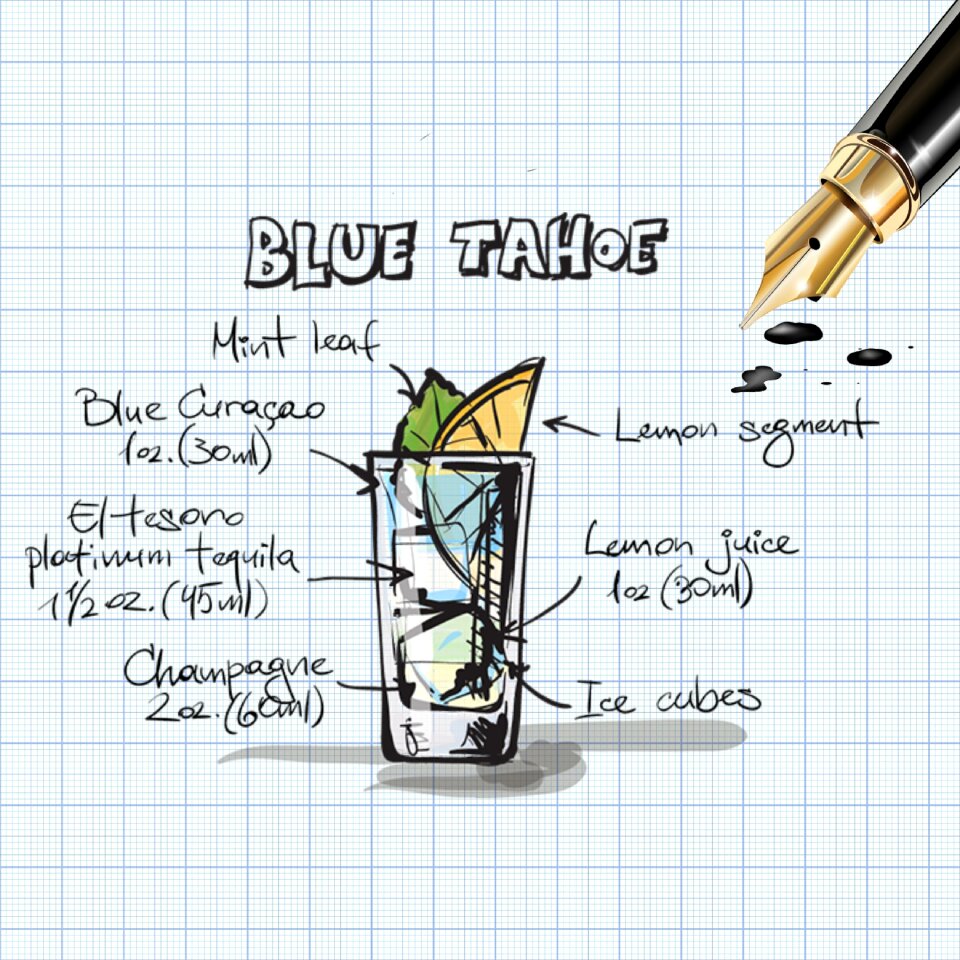 BLUE TAHOE
Mint leaf
Blue Curaçao
1oz.(30ml)
El tesoro
platinum tequila
1 1/2 oz.(45ml)
Champagne
2oz.(60ml)
Lemon segment
Lemon juice
1oz (30ml)
Ice cubes